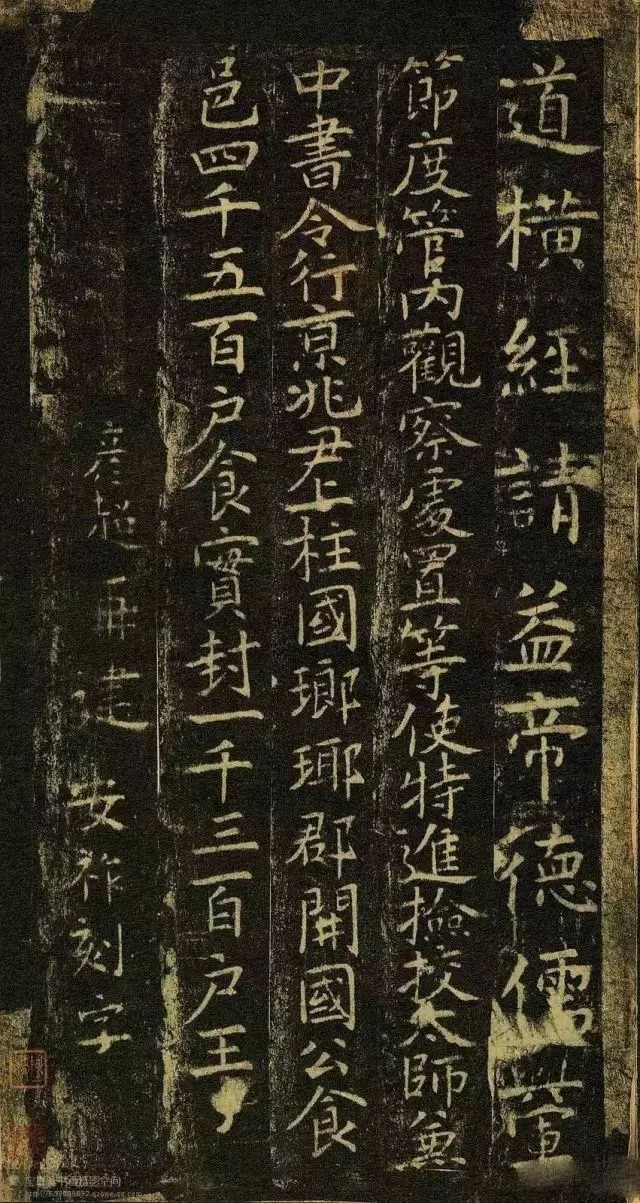 道橫經請益帝德儒軰
節度管內觀察處置等使特進撿挍太師兼
中書令行京兆尹上柱國瑯瑘郡開國公食
邑四千五百户食實封一千三百户王
彦超再建 安祚刻字